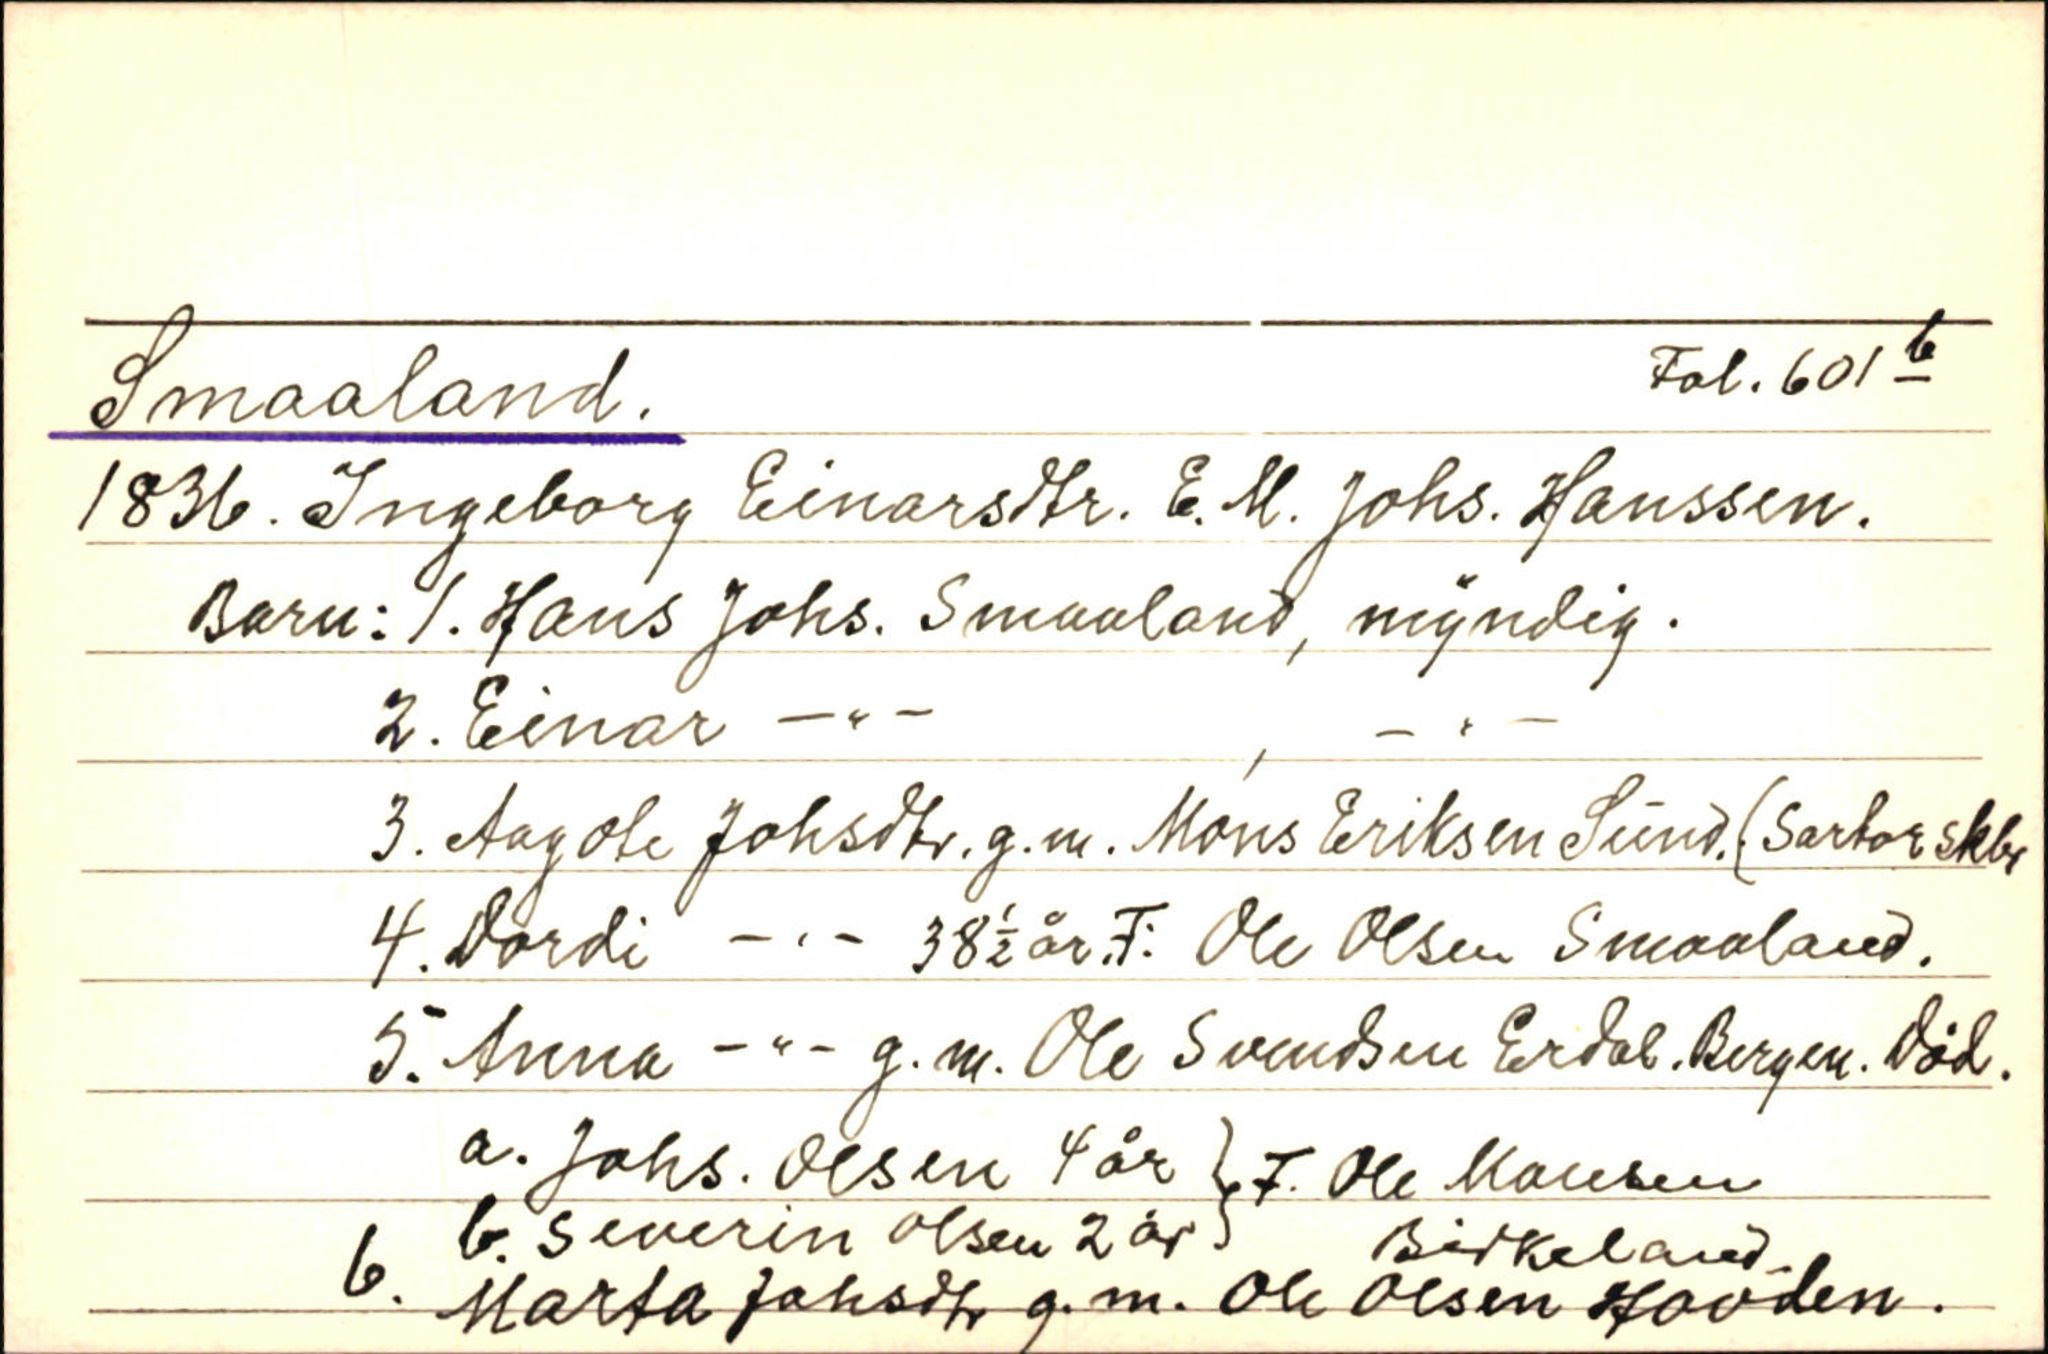 Smaaland. Fol. 601 b
1836. Ingeborg Einarsdtr. E. M. Johs. Hanssen.
Barn: 1. Hans Johs. Smaaland, myndig.
2. Einar —"— , —"—
3. Aagote Johsdtr. g.m. Mons Eriksen Sund. (Sartor skbr
4. Dordi —"— 38½ år. F: Ole Olsen Smaaland.
5. Anna —"— g.m. Ole Svendsen Erdal. Bergen. Död.
a. Johs. Olsen 4 år } F. Ole Monsen
b. Severin Olsen 2 år } Birkeland.
6. Marta Johsdtr g.m. Ole Olsen Hovden.